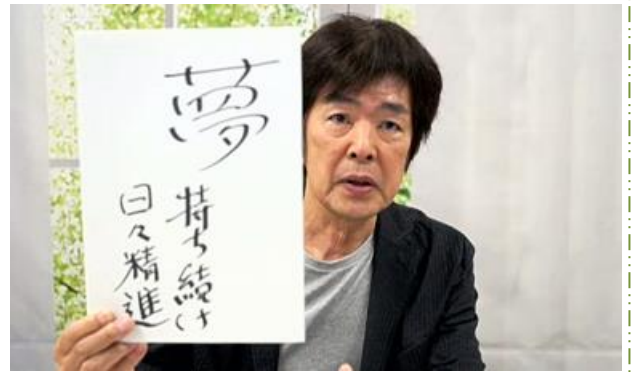 夢
持ち続け
日々精進